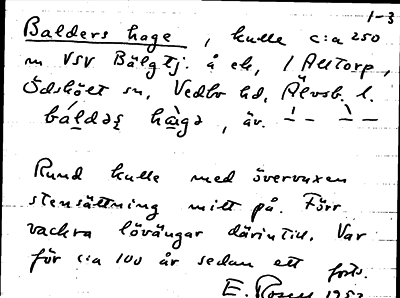 1-3
Balders hage, kulle c:a 250
m VSV Bälgtj. å ek, / Alltorp,
Ödskölt sn, Vedbo hd, Älvsb. l.
báldəʂ hà̱gə, äv.
Rund kulle med övervuxen
stensättning mitt på. Förr
vackra lövängar därintill. Var
för c:a 100 år sedan ett
E. Rosen 1952